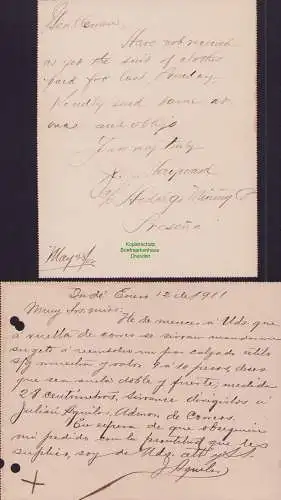 Gentlemen
Have not received
as yet the suit of clothes
paid for last Sunday.
Kindly send same at
once and oblige
Yours very truly
Hayward
Hidalgo Mining Co
May 4/11
Kopierschutz
Briefmarkenhaus
Dresden
Indé Enero 12 de 1911
Muy Sres. mios:
He de merecer á Uds que
á vuelta de correo se sirvan mandarme
sugeto á reembolso un par calzado estilo
s/g muestra y valor 9 a 10 pesos, deseo
que sea suela doble y fuerte, medida
28 centimetros, sirvanse dirigirlos á
Julián Aguilar, Admor de Correos.
En espera de que obsequien
mi pedido con la prontitud que les
suplico, soy de Uds. att y S.S.
J Aguilar